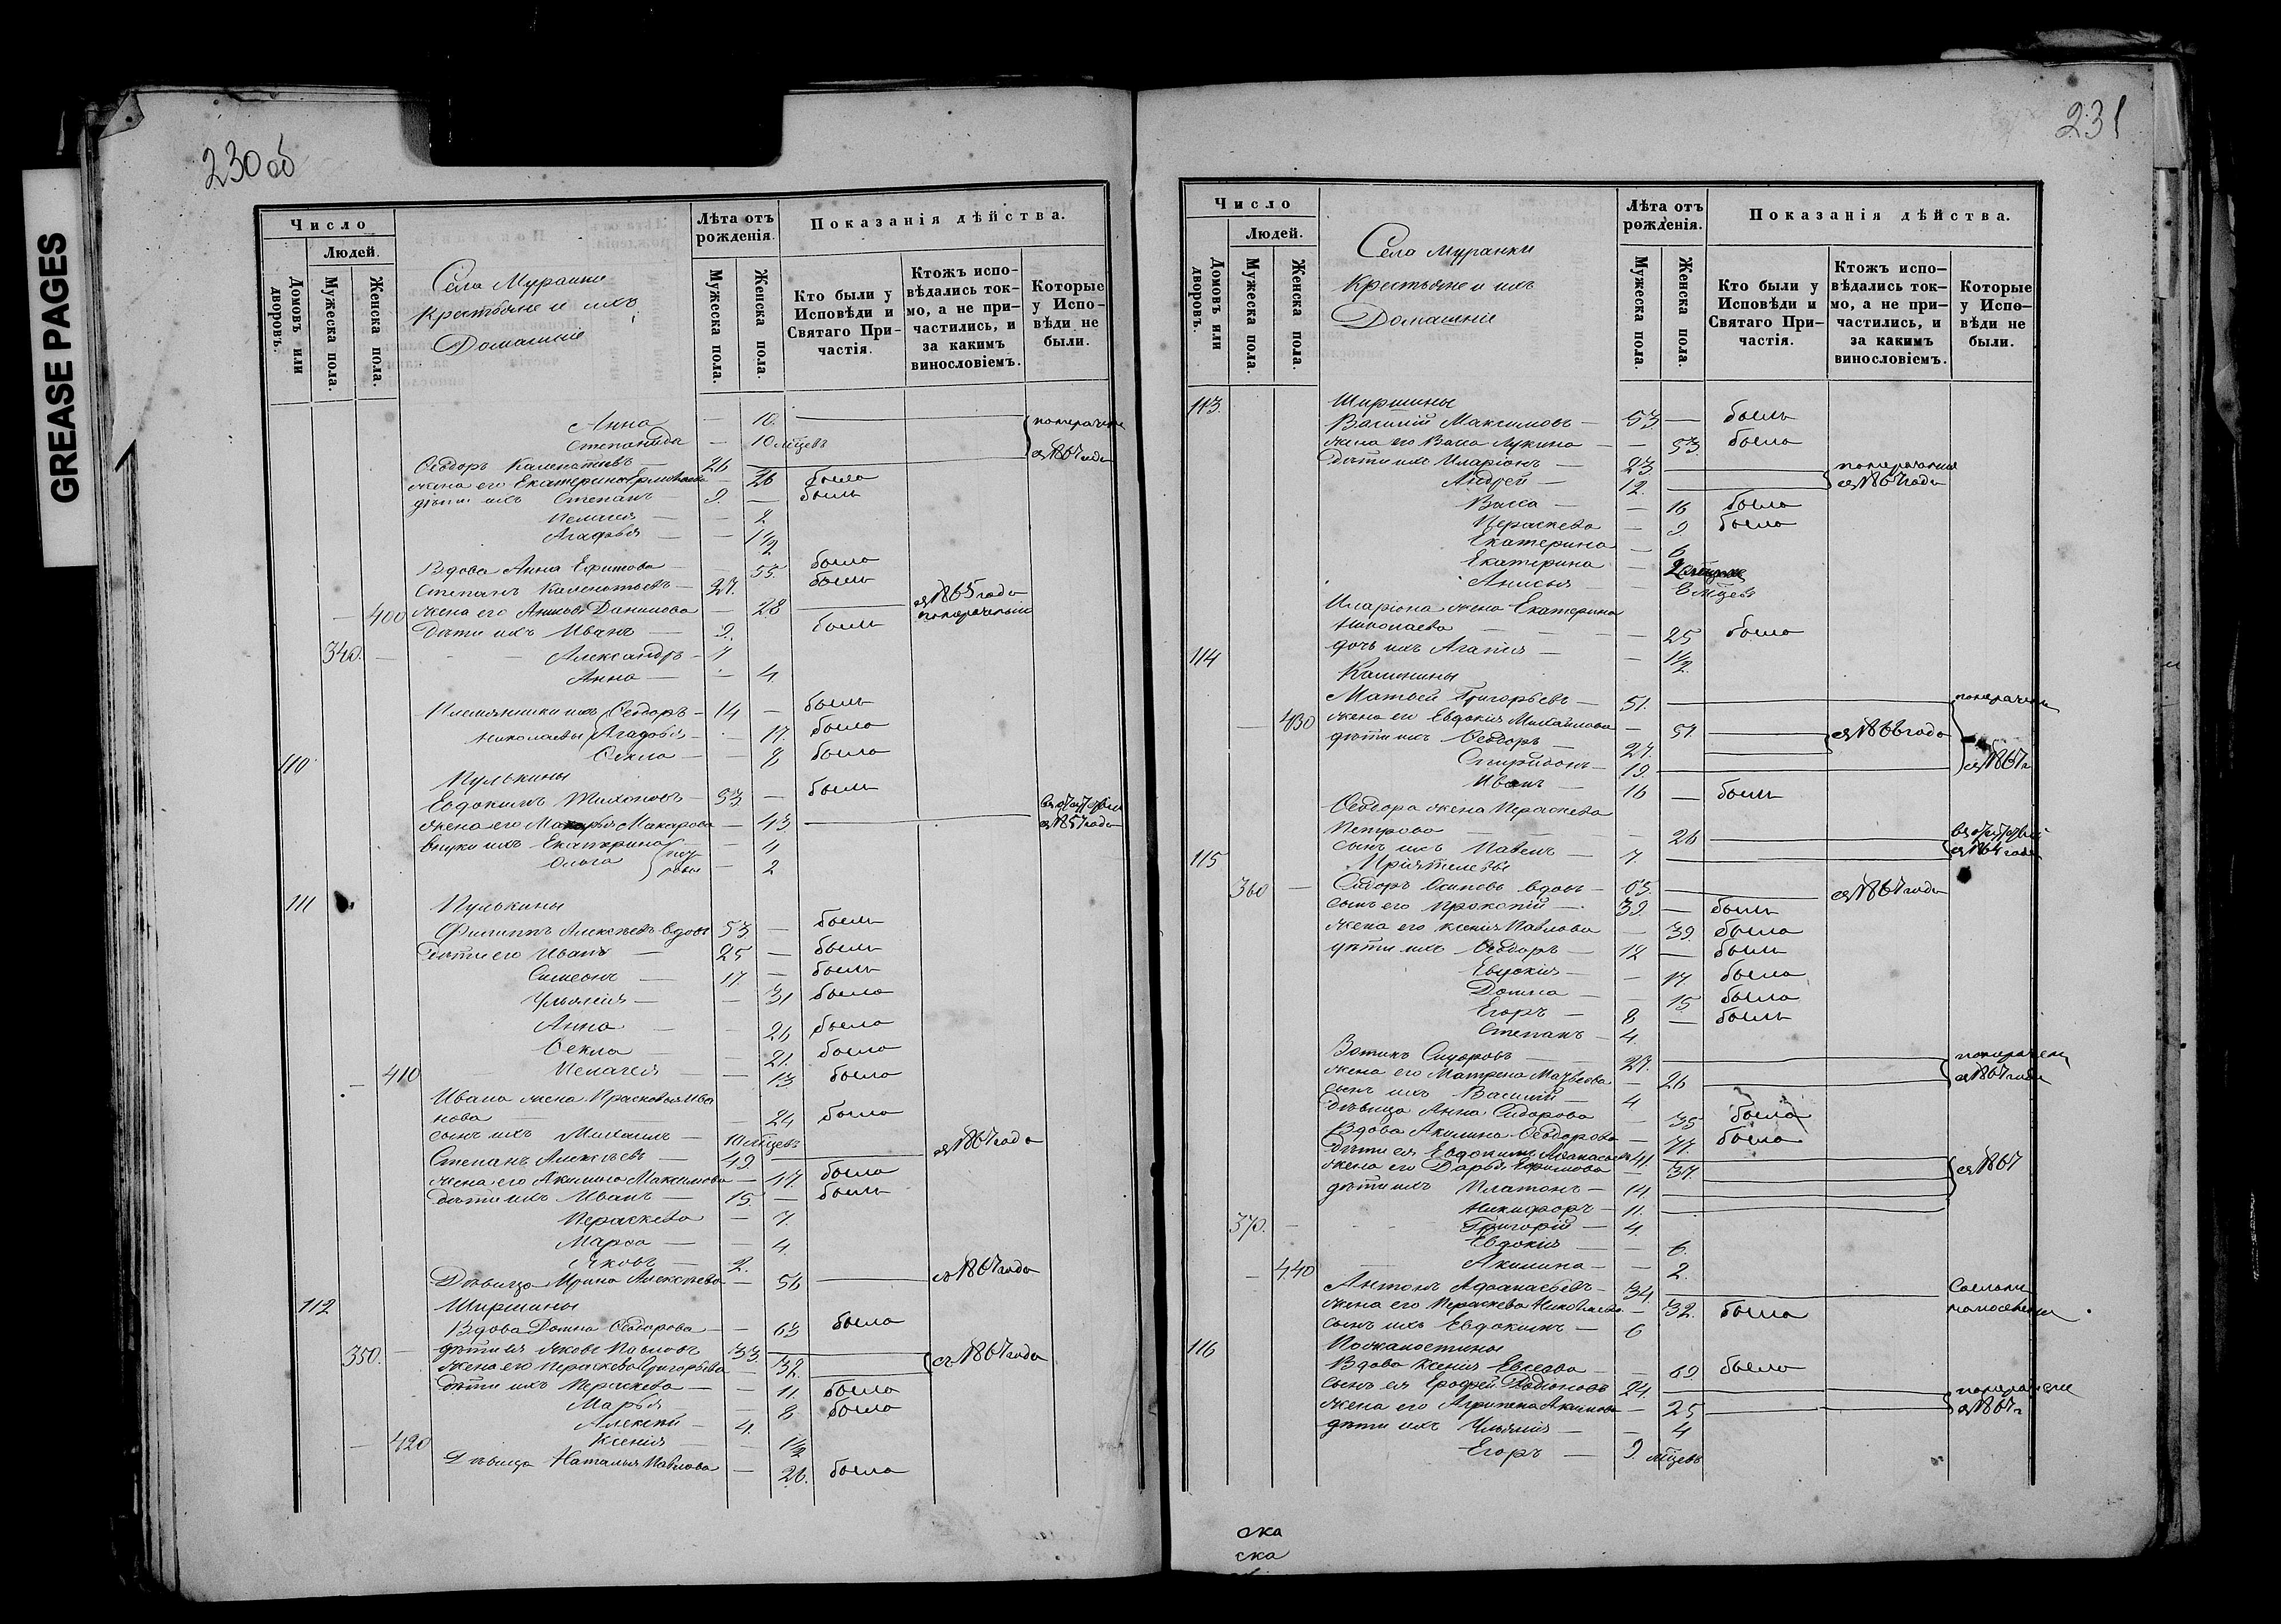 GREASE PAGES
230 об
Число
Людей.
Домовъ или дворовъ.
Мужеска пола.
Женска пола.
Села Муранки
Крестьяне и ихъ
Домашніе
Лѣта отъ рожденія.
Мужеска пола.
Женска пола.
Показанія дѣйства.
Кто были у Исповѣди и Святаго При-частія.
Ктожъ испо-вѣдались ток-мо, а не при-частились, и за какимъ винословіемъ.
Которые у Испо-вѣди не были.
Анна — 10.
Степанида — 10 мѣцевъ
съ 1867 года
Ѳеодоръ — 26
жена его Екатерина — 26 была
дѣти ихъ Степанъ — 9. — былъ
Пелагея — — 2
Агафья — — 1 1/2
Вдова Анна Ефимова — 55. была
Степанъ — 27. былъ
— 400 жена его Данилова — 28 съ 1865 года
Дѣти ихъ Иванъ — 9. былъ
340. — Александръ — 7
Анна — — 4
Племянники ихъ Ѳеодоръ — 14 — былъ
Николаевы Агафья — — 17. была
Ѳекла — — 8 была
110
Пулькины
Евдокимъ Тихоновъ — 53 — былъ
жена его Марья Макарова — 43 съ 1857 года
внуки ихъ Екатерина — 4
Ольга — 2
111 Пулькины
Филиппъ Алексѣевъ вдовъ 53 — былъ
Дѣти его Иванъ — 25 — былъ
Симеонъ — 17. — былъ
Ульянія — — 31 была
Анна — — 26 была
Ѳекла — 21. была
— 410 Пелагея — — 13 была
Ивана жена Прасковья Ива
нова — — 24 была
сынъ ихъ Михаилъ — 10 мѣцевъ
Степанъ Алексѣевъ — 49. съ 1867 года
жена его Акилина Максимова — 47. была
дѣти ихъ Иванъ — 15. — былъ
Параскева — 7.
Марѳа — — 4.
Яковъ — 2.
Дѣвица Ирина Алексѣева — 56 съ 1867 года
112 Ширшины
Вдова Домна Ѳеодорова — — 63 была
350. — дѣти ея Яковъ Павловъ 33. съ 1867 года
жена его Параскева Григорьева 32.
дѣти ихъ Параскева — — 11. была
Марья — 8 была
Алексѣй — 4.
— 420 Ксенія — 1 1/2
Дѣвица Наталья Павлова — 26. была
231
Число
Людей.
Домовъ или дворовъ.
Мужеска пола.
Женска пола.
Села Муранки
Крестьяне и ихъ
Домашніе
Лѣта отъ рожденія.
Мужеска пола.
Женска пола.
Показанія дѣйства.
Кто были у Исповѣди и Святаго При-частія.
Ктожъ испо-вѣдались ток-мо, а не при-частились, и за какимъ винословіемъ.
Которые у Испо-вѣди не были.
113. Ширшины
Василій Максимовъ — 53 — былъ
жена его Васса Лукина — — 53. была
Дѣти ихъ Иларіонъ — 23.
Андрей — 12. съ 1867 года
Васса — — 16 была
Параскева — 9 была
Екатерина — 6
Екатерина — 2
Анисья — 8 мѣцевъ
Иларіона жена Екатерина
Николаева — — — 25 была
дочь ихъ Агапія — — 1 1/2
114
Калинины
Матвей Григорьевъ — 51.
— 430 жена его Евдокія Михайлова — 51. съ 1866 года
дѣти ихъ Ѳеодоръ — 27.
Спиридонъ — 19. съ 1867 г
Иванъ — 16 — былъ
Ѳеодора жена Параскева
Петрова — — 26
сынъ ихъ Павелъ — 7
115 Пріятелевы
360 — Сидоръ Осиповъ вдовъ — 65. съ 1867 года
сынъ его Прокопій — 39. — былъ
жена его Ксенія Павлова — 39. была
дѣти ихъ Ѳеодоръ — 12 — былъ
Евдокія — — 17. была
Домна — — 15 была
Егоръ — 8 — былъ
Степанъ — 4.
Зотикъ Сидоровъ — 27.
жена его Матрена Матвеева — 26 съ 1867 года
сынъ ихъ Василій — 4
Дѣвица Анна Сидорова — 35 была
Вдова Акилина Ѳеодорова — 77. была
Дѣти ея Евдокимъ Аѳанасьевъ 41.
жена его Дарья Ефимова — 37. съ 1867
дѣти ихъ Платонъ — 14
Никифоръ — 11.
370. — Григорій — 4.
Евдокія — — 6.
— 440 Акилина — — 2.
Антонъ Аѳанасьевъ — 34.
жена его Параскева Николаева — 32. была
сынъ ихъ Евдокимъ — 6
116
Вдова Ксенія Евсеева — 69. была
сынъ ея Ерофей Родіоновъ 24.
жена его Агрипена Акимова — 25 съ 1867 г
дѣти ихъ Ульянія — — 4
Егоръ — 9. мѣцевъ
ска
ска